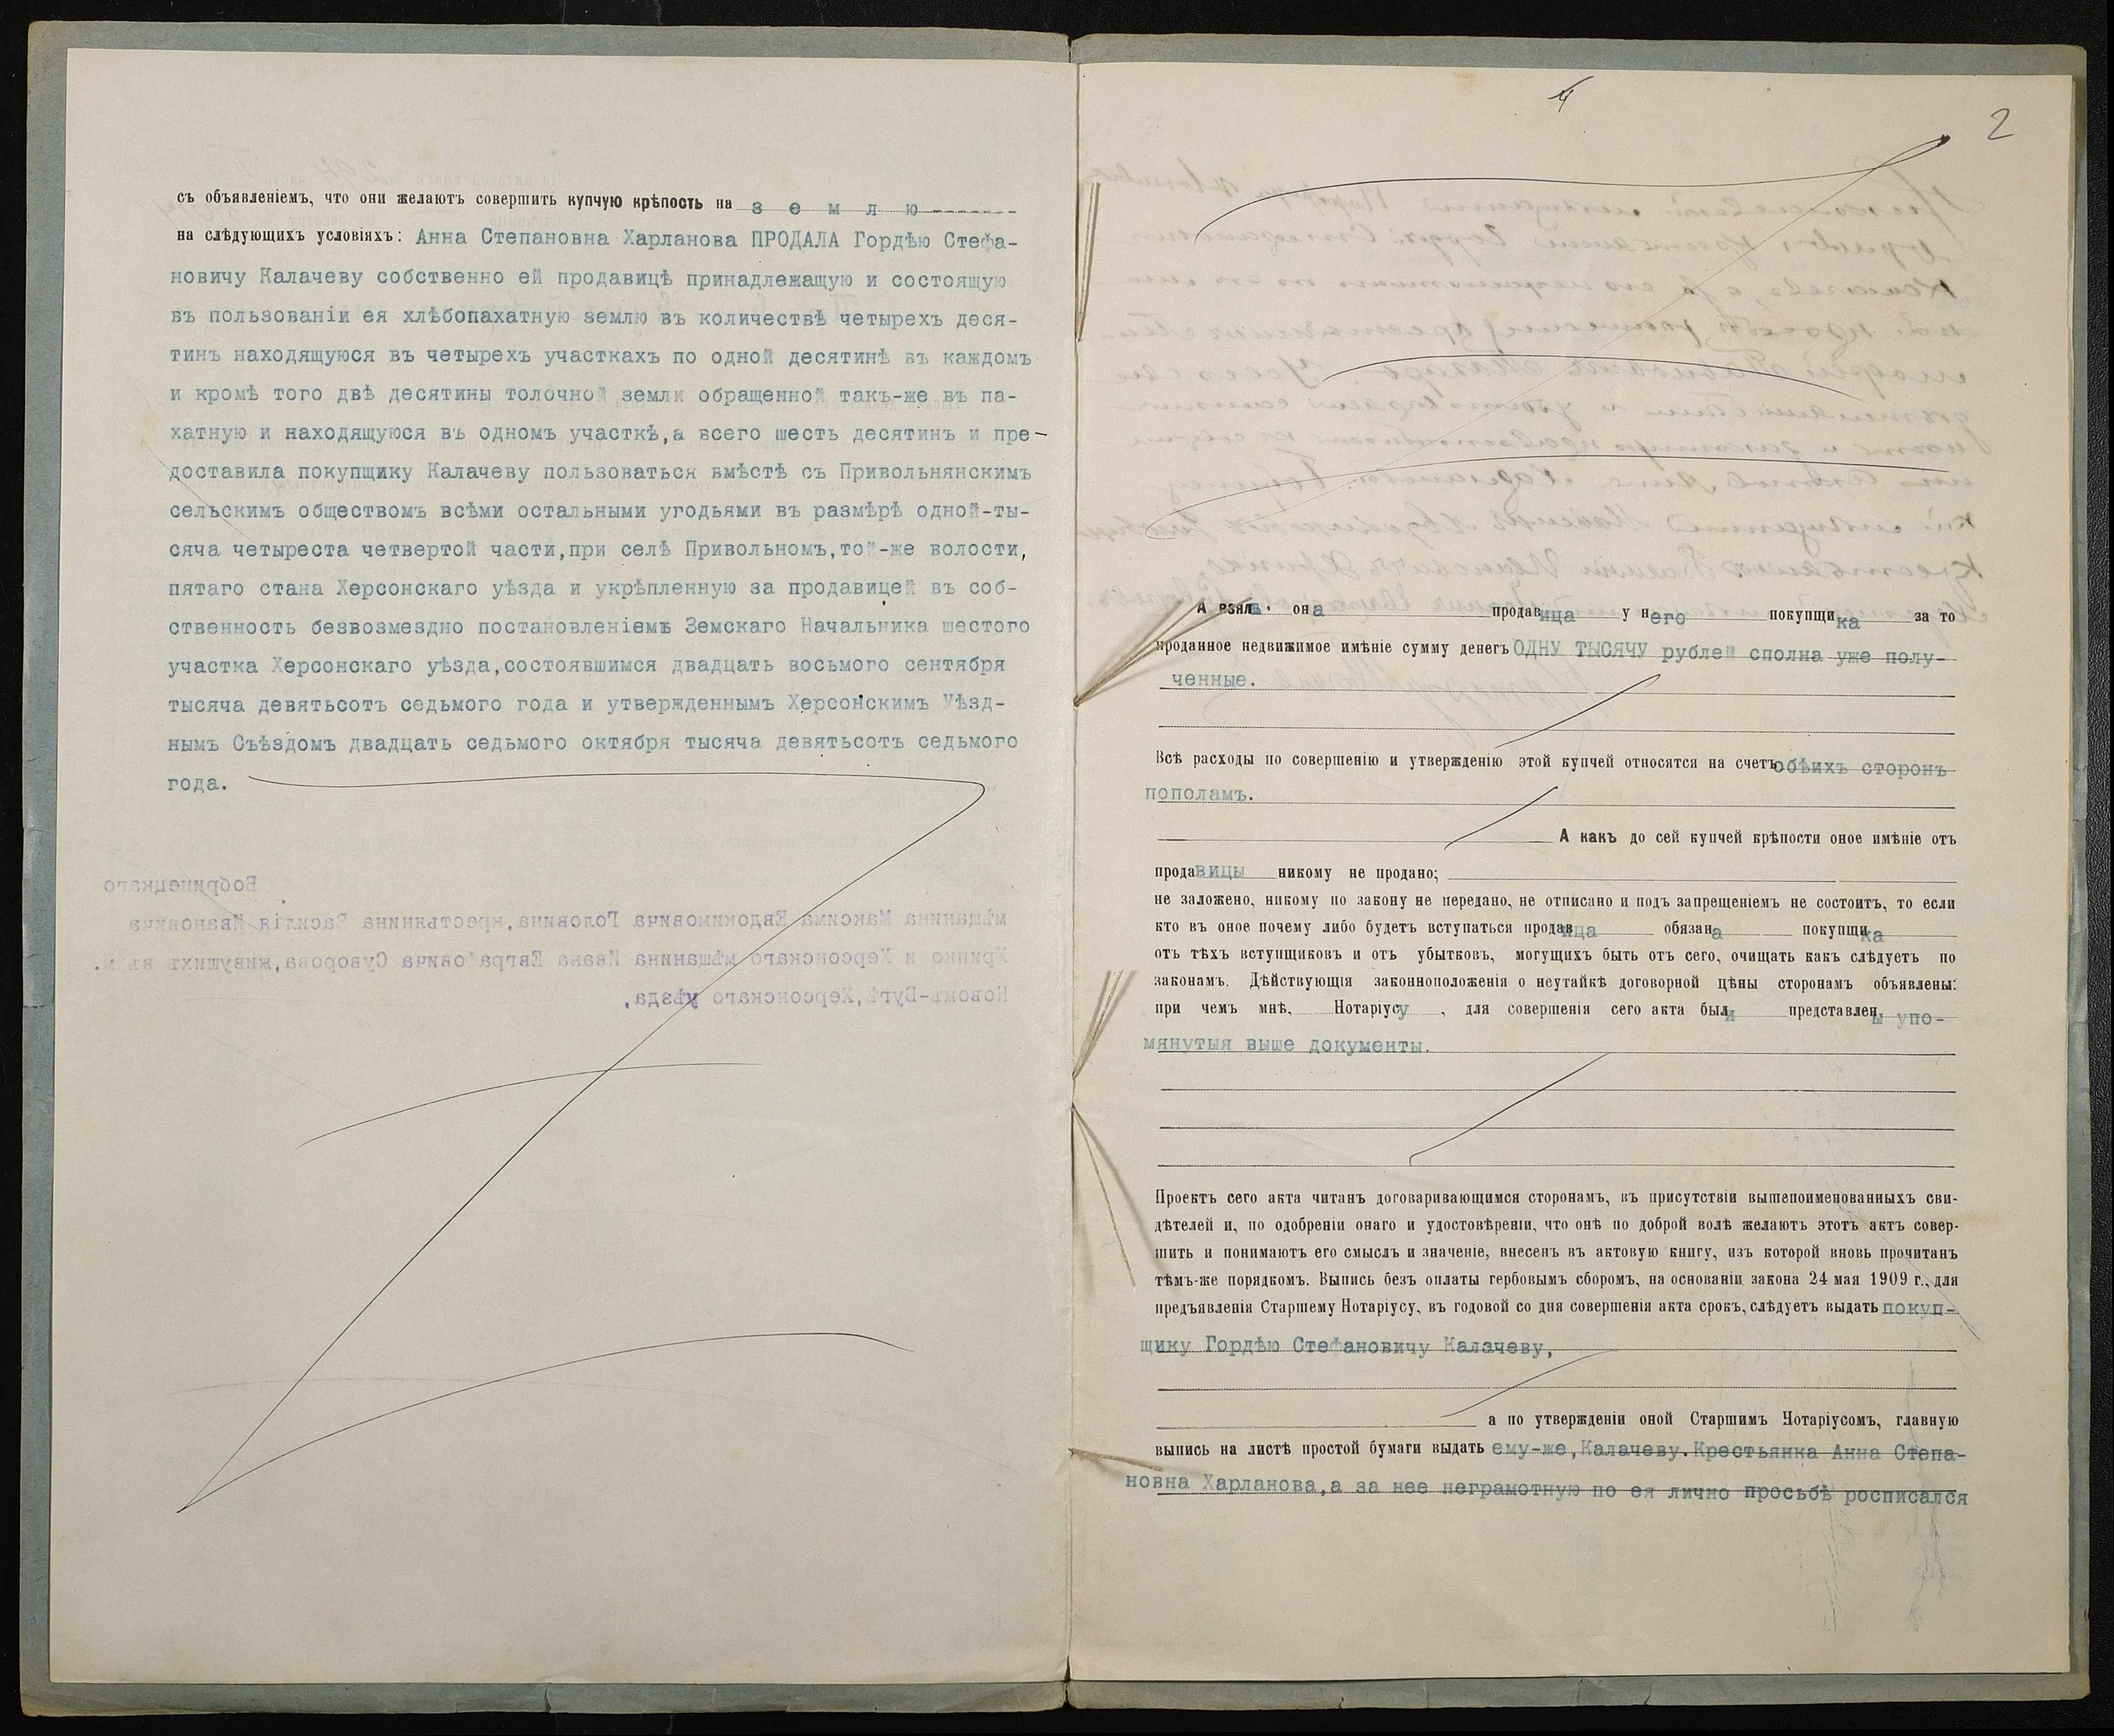 съ объявленіемъ, что они желаютъ совершить купчую крѣпость на з е м л ю -------
на слѣдующихъ условіяхъ: Анна Степановна Харланова ПРОДАЛА Гордѣю Стефа-
новичу Калачеву собственно ей продавицѣ принадлежащую и состоящую
въ пользованіи ея хлѣбопахатную землю въ количествѣ четырехъ деся-
тинъ находящуюся въ четырехъ участкахъ по одной десятинѣ въ каждомъ
и кромѣ того двѣ десятины толочной земли обращенной такъ-же въ па-
хатную и находящуюся въ одномъ участкѣ,а всего шесть десятинъ и пре-
доставила покупщику Калачеву пользоваться вмѣстѣ съ Привольнянскимъ
сельскимъ обществомъ всѣми остальными угодьями въ размѣрѣ одной-ты-
сяча четыреста четвертой части,при селѣ Привольномъ,той-же волости,
пятаго стана Херсонскаго уѣзда и укрѣпленную за продавицей въ соб-
ственность безвозмездно постановленіемъ Земскаго Начальника шестого
участка Херсонскаго уѣзда,состоявшимся двадцать восьмого сентября
тысяча девятьсотъ седьмого года и утвержденнымъ Херсонскимъ Уѣзд-
нымъ Съѣздомъ двадцать седьмого октября тысяча девятьсотъ седьмого
года.
Бобринецкаго
мѣщанина Максима Евдокимовича Головина,крестьянина Василія Ивановича
Хрипко и Херсонскаго мѣщанина Ивана Евграфовича Суворова,живущихъ въ м.
Новомъ-Бугѣ,Херсонскаго уѣзда,
2
А взяла она продавица у него покупщика за то
проданное недвижимое имѣніе сумму денегъ ОДНУ ТЫСЯЧУ рублей сполна уже полу-
ченные.
Всѣ расходы по совершенію и утвержденію этой купчей относятся на счетъ обѣихъ сторонъ
пополамъ.
А какъ до сей купчей крѣпости оное имѣніе отъ
продавицы никому не продано;
не заложено, никому по закону не передано, не отписано и подъ запрещеніемъ не состоитъ, то если
кто въ оное почему либо будетъ вступаться продавица обязана покупщика
отъ тѣхъ вступщиковъ и отъ убытковъ, могущихъ быть отъ сего, очищать какъ слѣдуетъ по
законамъ. Дѣйствующія законноположенія о неутайкѣ договорной цѣны сторонамъ объявлены:
при чемъ мнѣ, Нотаріусу, для совершенія сего акта были представлены упо-
мянутыя выше документы.
Проектъ сего акта читанъ договаривающимся сторонамъ, въ присутствіи вышепоименованныхъ сви-
дѣтелей и, по одобреніи онаго и удостовѣреніи, что онѣ по доброй волѣ желаютъ этотъ актъ совер-
шить и понимаютъ его смыслъ и значеніе, внесенъ въ актовую книгу, изъ которой вновь прочитанъ
тѣмъ-же порядкомъ. Выпись безъ оплаты гербовымъ сборомъ, на основаніи закона 24 мая 1909 г., для
предъявленія Старшему Нотаріусу, въ годовой со дня совершенія акта срокъ, слѣдуетъ выдать покуп-
щику Гордѣю Стефановичу Калачеву,
а по утвержденіи оной Старшимъ Нотаріусомъ, главную
выпись на листѣ простой бумаги выдать ему-же,Калачеву.Крестьянка Анна Степа-
новна Харланова,а за нее неграмотную по ея лично просьбѣ росписался